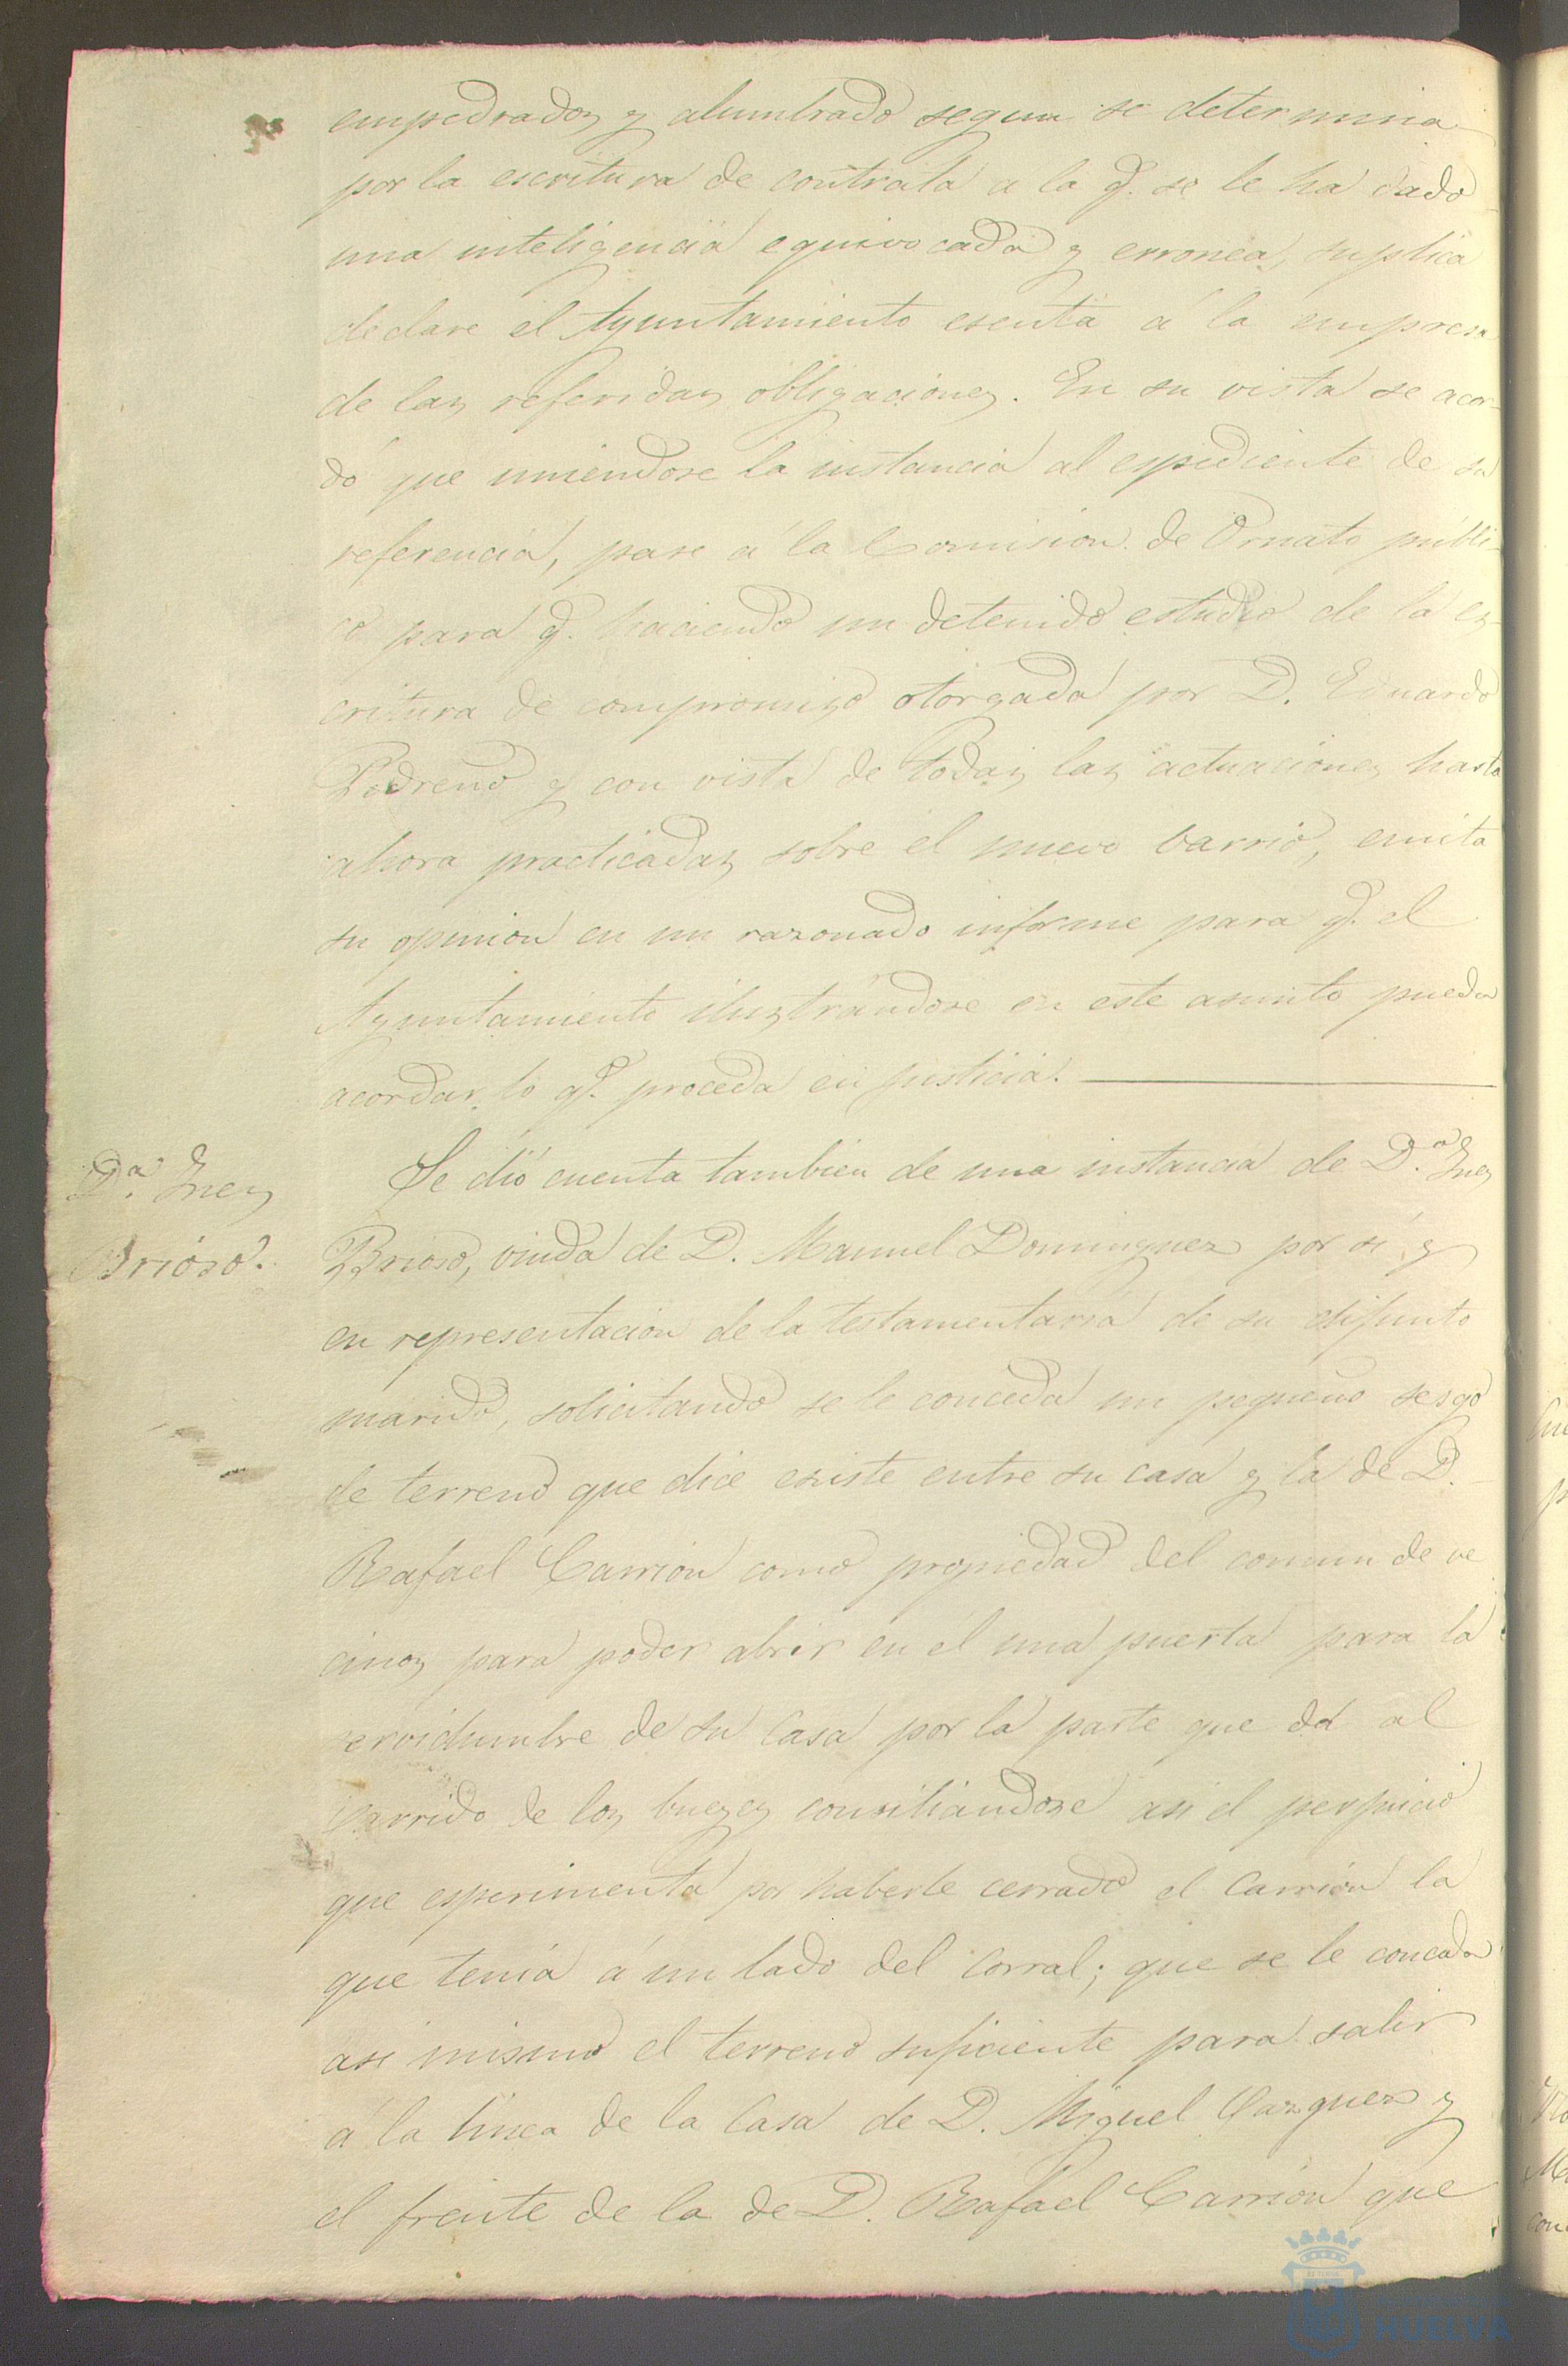 empedrados y alumbrado segun se determina
por la escritura de contrata a la q.e se le ha dado
una inteligencia equivocada y erronea, suplica
declare el Ayuntamiento esenta á la empresa
de las referidas obligaciones. En su vista se acor-
dó que uniendose la instancia al espediente de su
referencia, pase á la Comision de Ornato públi-
co para q.e haciendo un detenido estudio de la es-
critura de compromiso otorgada por D. Eduardo
Pedreño y con vista de todas las actuaciones hasta
ahora practicadas sobre el nuevo barrio, emita
su opinion en un razonado informe para q.e el
Ayuntamiento ilustrándose en este asunto pueda
acordar lo q.e proceda en justicia.
D.ª Ines
Brioso.
Se dió cuenta tambien de una instancia de D.ª Ines
Brioso, viuda de D. Manuel Dominguez por si y
en representacion de la testamentaria de su difunto
marido, solicitando se le conceda un pequeño sesgo
de terreno que dice existe entre su casa y la de D.
Rafael Carrion como propiedad del comun de ve
cinos para poder abrir en él una puerta para la
servidumbre de su casa por la parte que dá al
barrido de los bueyes consiliándose asi el perjuicio
que esperimenta por haberle cerrado el Carrion la
que tenia á un lado del corral; que se le conceda
asi mismo el terreno suficiente para salir
á la linea de la casa de D. Miguel Vazquez y
el frente de la de D. Rafael Carrion que
HUELVA